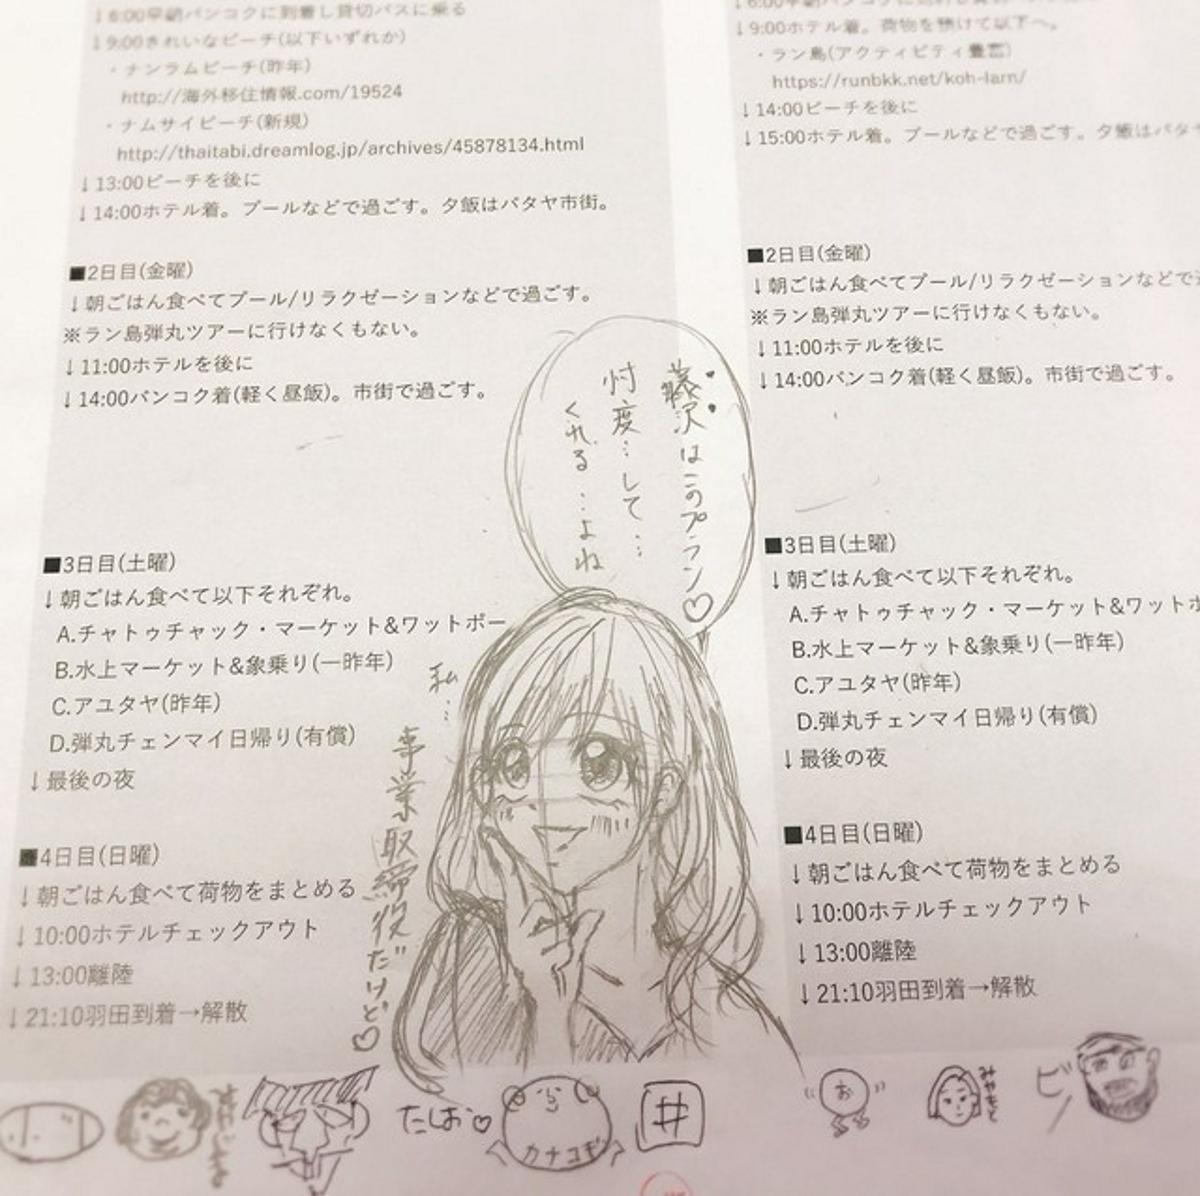 ↓6:00早朝バンコクに到着し貸切バスに乗る
↓9:00きれいなビーチ(以下いずれか)
・ナンラムビーチ(昨年)
http://海外移住情報.com/19524
・ナムサイビーチ(新規)
http://thaitabi.dreamlog.jp/archives/45878134.html
↓13:00ビーチを後に
↓14:00ホテル着。プールなどで過ごす。夕飯はパタヤ市街。
■2日目(金曜)
↓朝ごはん食べてプール/リラクゼーションなどで過ごす。
※ラン島弾丸ツアーに行けなくもない。
↓11:00ホテルを後に
↓14:00バンコク着(軽く昼飯)。市街で過ごす。
■3日目(土曜)
↓朝ごはん食べて以下それぞれ。
A.チャトゥチャック・マーケット&ワットポー
B.水上マーケット&象乗り(一昨年)
C.アユタヤ(昨年)
D.弾丸チェンマイ日帰り(有償)
↓最後の夜
■4日目(日曜)
↓朝ごはん食べて荷物をまとめる
↓10:00ホテルチェックアウト
↓13:00離陸
↓21:10羽田到着→解散
↓9:00ホテル着。荷物を預けて以下へ。
・ラン島(アクティビティ豊富)
https://runbkk.net/koh-larn/
↓14:00ビーチを後に
↓15:00ホテル着。プールなどで過ごす。夕飯はパタヤ
■2日目(金曜)
↓朝ごはん食べてプール/リラクゼーションなどで
※ラン島弾丸ツアーに行けなくもない。
↓11:00ホテルを後に
↓14:00バンコク着(軽く昼飯)。市街で過ごす。
■3日目(土曜)
↓朝ごはん食べて以下それぞれ。
A.チャトゥチャック・マーケット&ワットポ
B.水上マーケット&象乗り(一昨年)
C.アユタヤ(昨年)
D.弾丸チェンマイ日帰り(有償)
↓最後の夜
■4日目(日曜)
↓朝ごはん食べて荷物をまとめる
↓10:00ホテルチェックアウト
↓13:00離陸
↓21:10羽田到着→解散
藤沢はこのプラン♡
忖度…して…
くれる…よね
私…
事業取締役だけど♡
たしお♡
カナコギ
#
お
みやもと
ビ